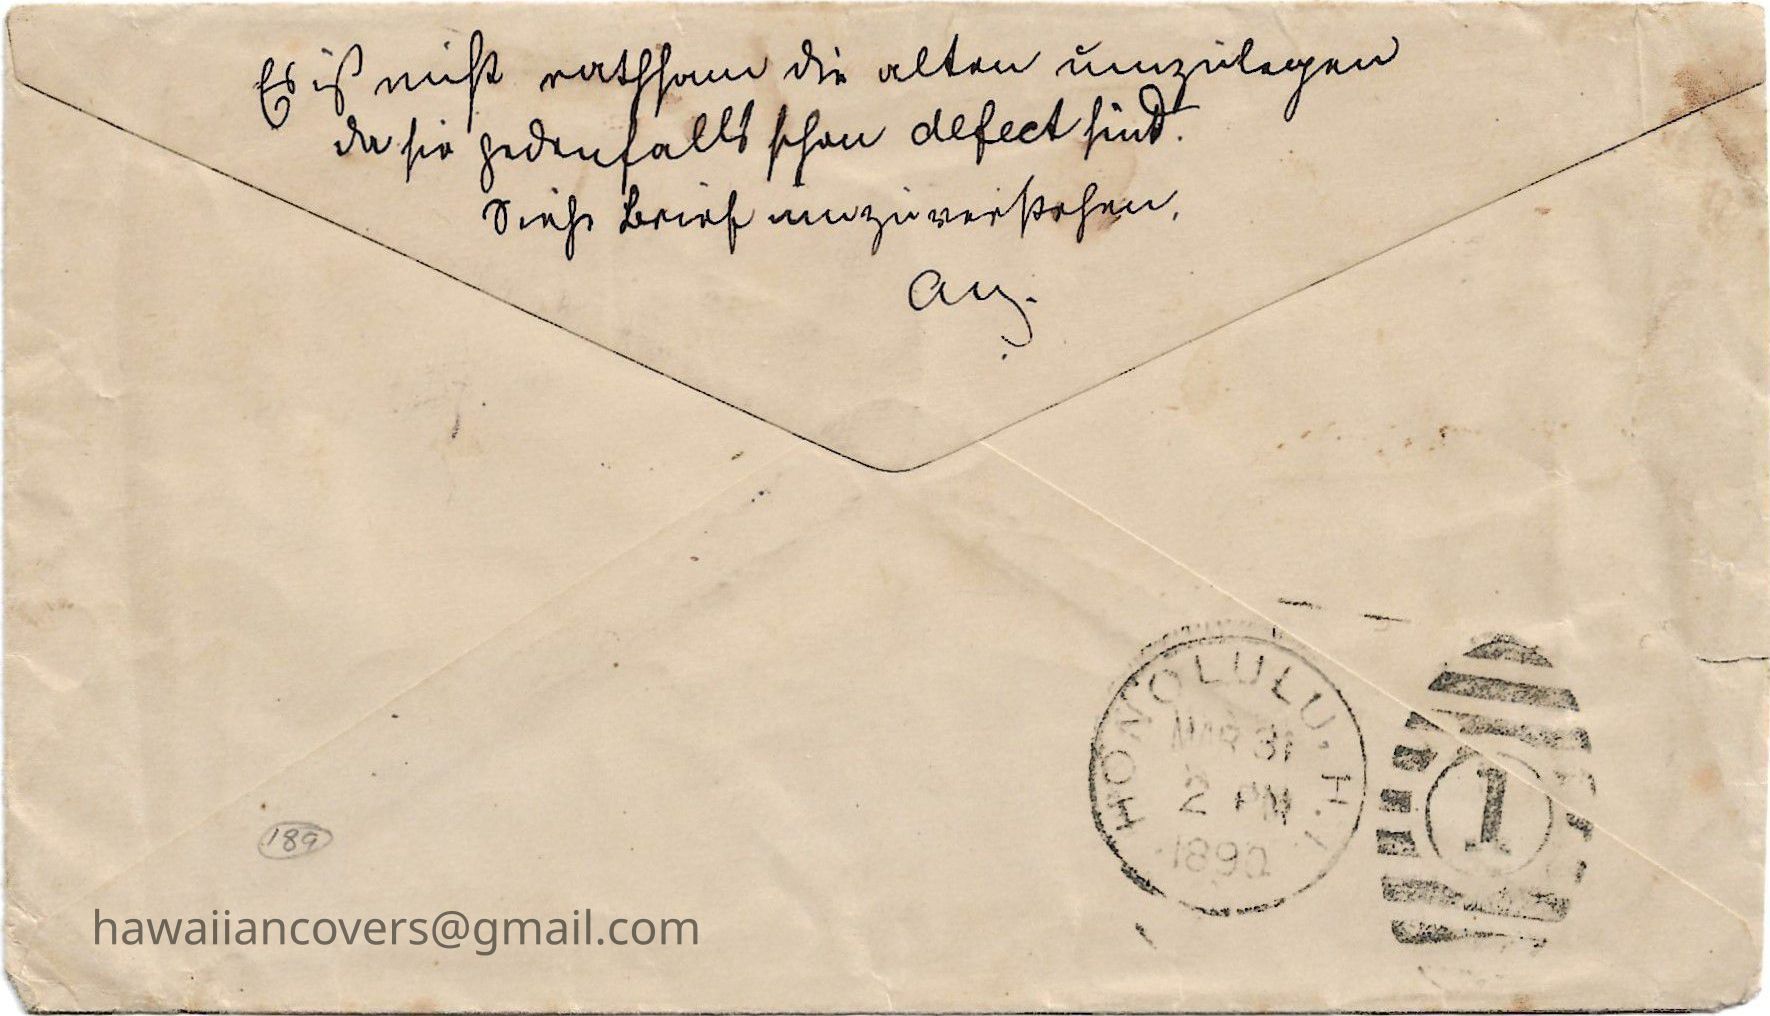 Es ist nicht rathsam die alten umzulegen
da sie jedenfalls schon defect sind.
Siehe Brief um zu verstehen.
Aug.
HONOLULU. H.I.
MAR 31
2 PM
1890
1
189
hawaiiancovers@gmail.com